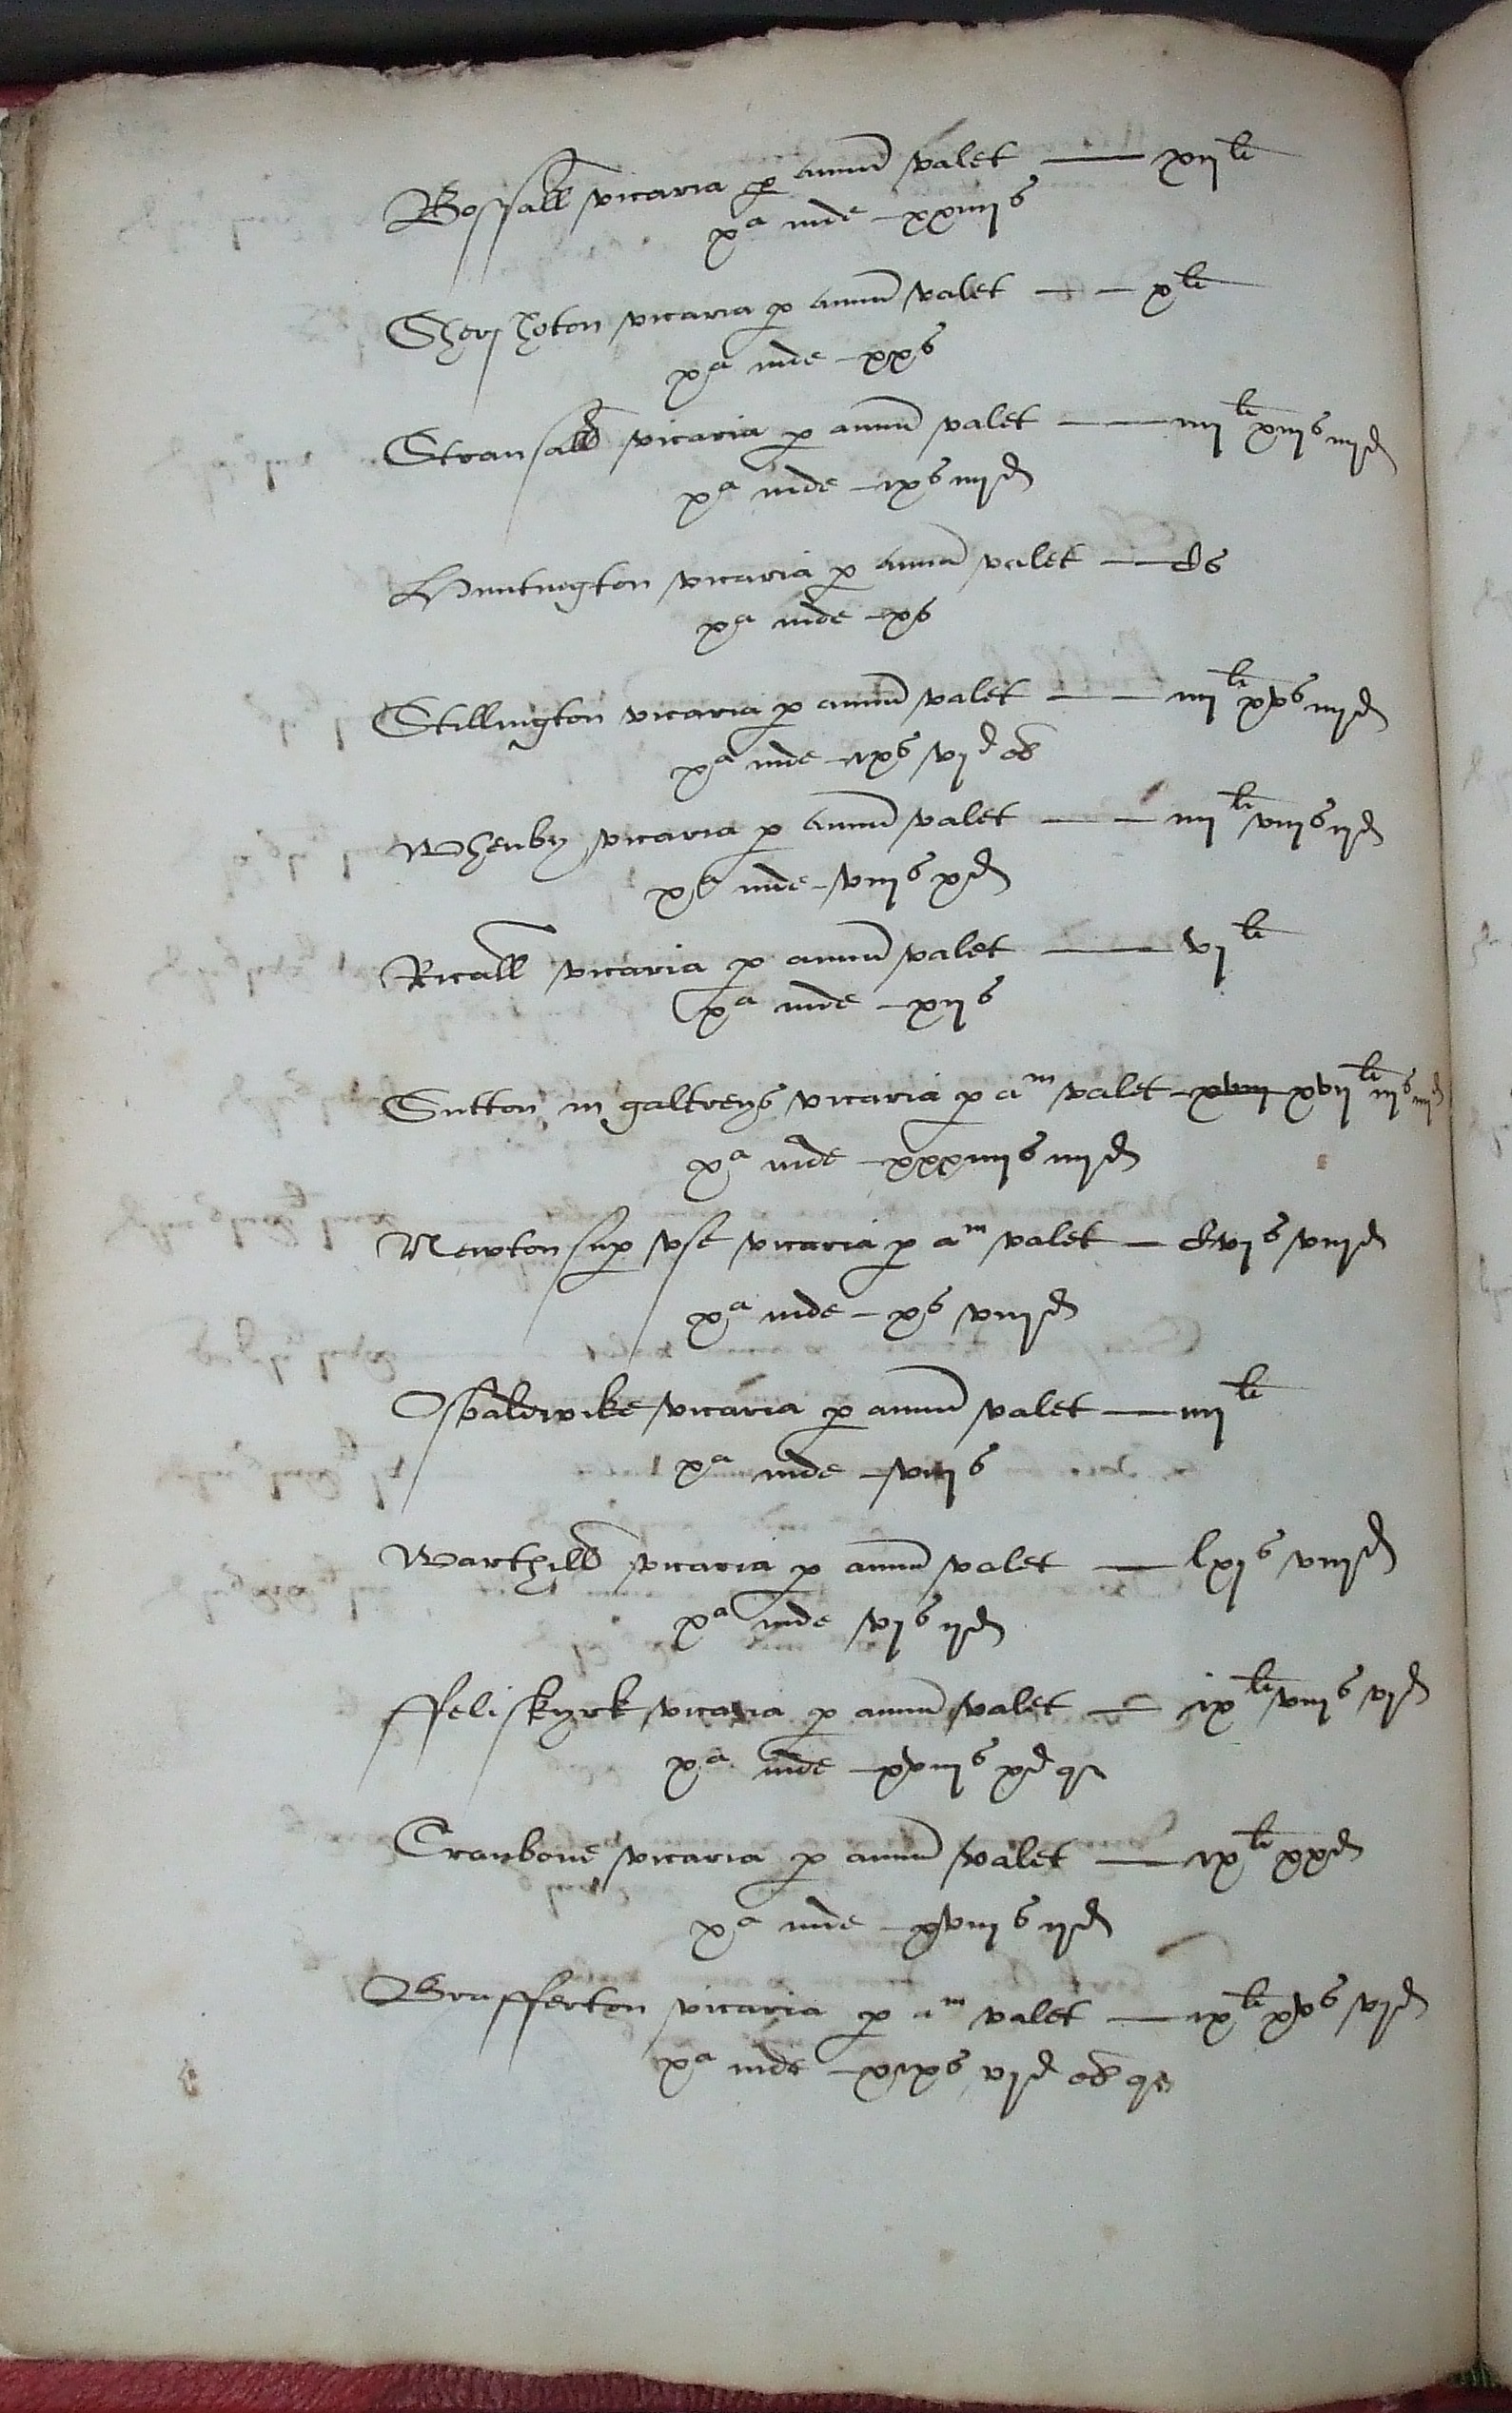 Bossall vicaria p annu valet — xij li
xa inde — xxiiij s
Sherifhoton vicaria p annu valet — x li
xa inde — xx s
Stransall vicaria p annu valet — iiij li xiij s iiij d
xa inde — ix s iiij d
Huntington vicaria p annu valet — C s
xa inde — x s
Stillington vicaria p annu valet — iiij li xv s iiij d
xa inde — ix s vj d ob
Whenby vicaria p annu valet — iiij li viij s iiij d
xa inde — viij s x d
Ricall vicaria p annu valet — vj li
xa inde — xij s
Sutton in galtreys vicaria p am valet — xvij xvij li iij s iiij d
xa inde — xxxiiij s iiij d
Newton sup vse vicaria p am valet — Cvj s viij d
xa inde — x s viij d
Osbaldwike vicaria p annu valet — iiij li
xa inde — viij s
Warthill vicaria p annu valet — lxj s viij d
xa inde vj s ij d
ffeliskyrk vicaria p annu valet — ix li viij s vj d
xa inde — xviij s x d q
Cranbone vicaria p annu valet — ix li xx d
xa inde — xviij s ij d
Brafferton vicaria p am valet — ix li xv s vj d
xa inde — xix s vj d ob q